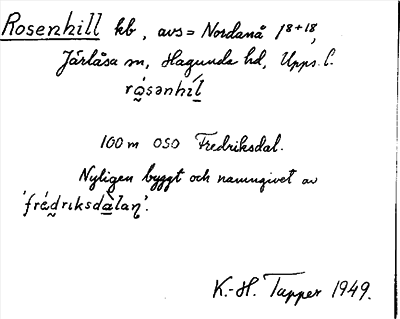 Rosenhill kb, avs = Nordanå 1⁸⁺¹⁸,
Järlåsa sn, Hagunda hd, Upps. l.
rósənhíl
100 m OSO Fredriksdal.
Nyligen byggt och namngivet av
'frédrɪksdàlaɳ'.
K.-H. Tapper 1949.